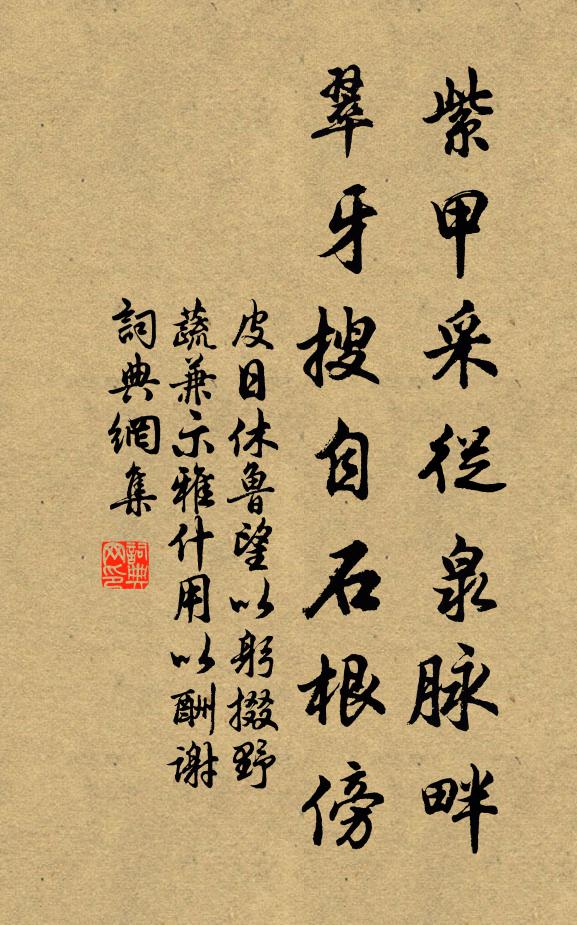 紫甲采從泉脉畔
翠牙搜自石根傍
皮日休魯望以躬掇野
蔬兼示雅什用以酬谢
詞典網集
詞典网印